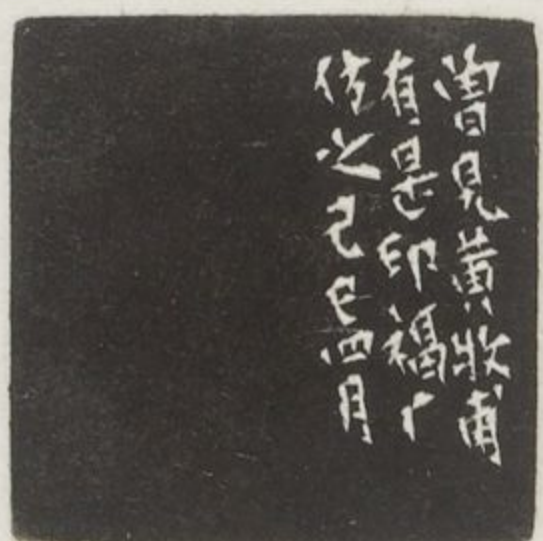 曾見黄牧甫
有是印福厂
仿之己巳四月